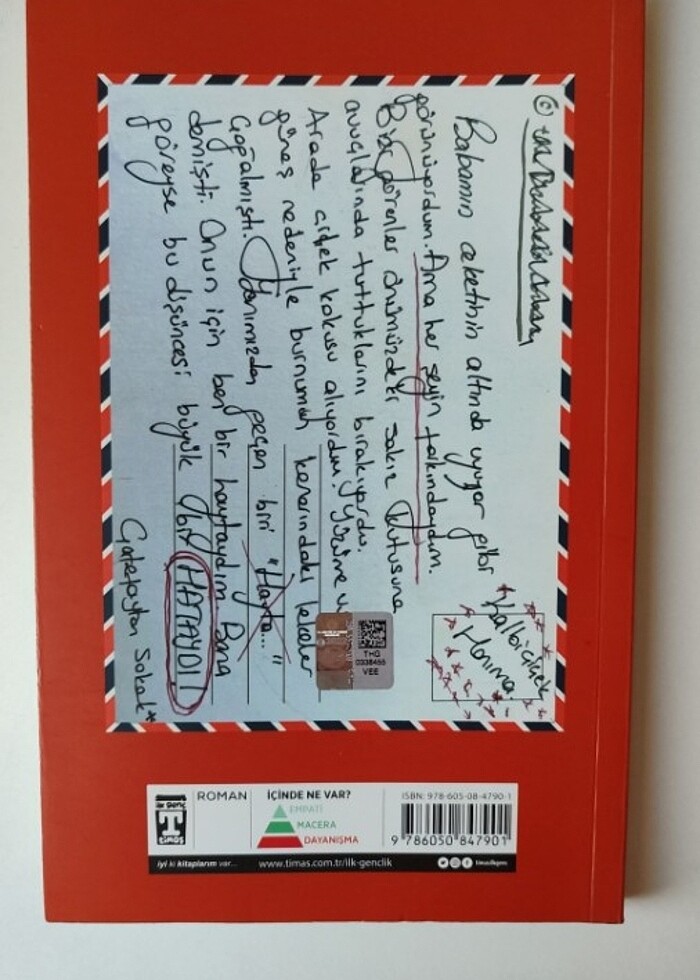 Babamın ceketinin altında uyuyor gibi
görünüyordum. Ama her şeyin farkındaydım.
Bizi görenler önümüzdeki sakız kutusuna
avuçlarında tuttuklarını bırakıyordu.
Arada çiçek kokusu alıyordum. Yüzüme vu
güneş nedeniyle burnumun kenarındaki lekeler
çoğalmıştı. Yanımızdan geçen biri "Hayta..."
demişti. Onun için ben bir haytaydım. Bana
göreyse bu düşüncesi büyük bir HATAYDI!
Kalbi çiçek
Hanıma
THG
0338466
VEE
ilk genç
timaş
ROMAN
İÇİNDE NE VAR?
EMPATİ
MACERA
DAYANIŞMA
ISBN: 978-605-08-4790-1
9 786050 847901
iyi ki kitaplarım var...
www.timas.com.tr/ilk-genclik
timasilkgenc